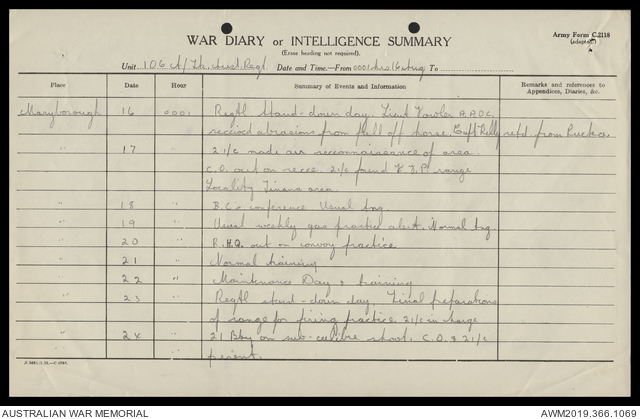 Army Form C.2118
(adapted)
WAR DIARY or INTELLIGENCE SUMMARY
(Erase heading not required).
Unit 106 A/Tk. Aust. Regt. Date and Time—From 0001 hrs 16 Aug To
Place Date Hour Summary of Events and Information Remarks and references to Appendices, Diaries, &c.
Maryborough 16 0001 Regtl Stand-down day. Lieut Fowler A.A.D.C.
received abrasions from fall off horse. Capt Reilly retd from Pucka.
" 17 " 2i/c made air reconnaissance of area.
C.O. out on recce. 2i/c found range
locality Tinana area.
" 18 " B.C's conference. Usual tng.
" 19 " Usual weekly gas practice alert. Normal tng.
" 20 " R.H.Q. out on convoy practice
" 21 " Normal training
" 22 " Maintenance Day & training
" 23 " Regtl stand-down day. Final preparations
of range for firing practice. 2i/c in charge
" 24 " 21 Bty on sub-calibre shoot. C.O. & 2i/c
present.
AUSTRALIAN WAR MEMORIAL
AWM2019.366.1069